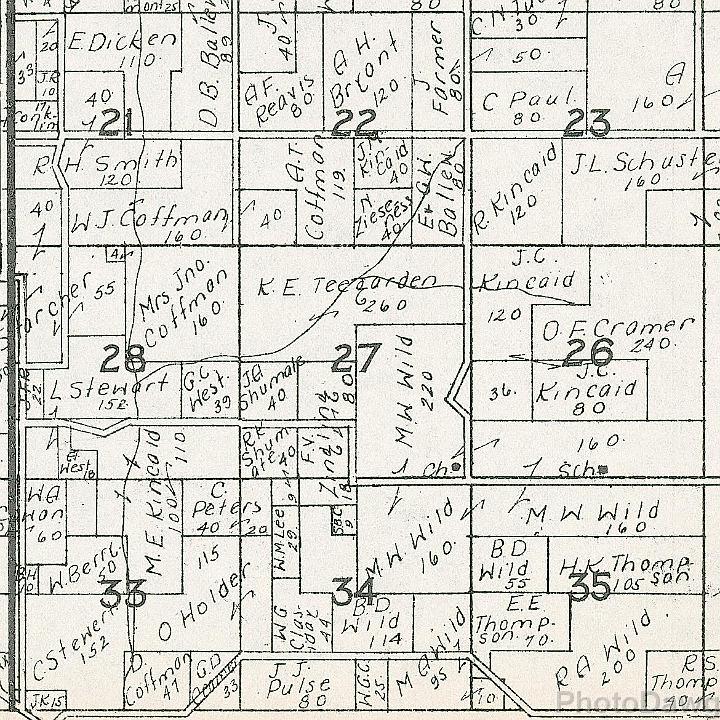 80
80
E. Dicken
110
20
33
J.R.
10
40
21
D.B. Ballew
89
J.
40
A.F.
Reavis
80
A H.
Bryant
120
22
J
Farmer
80
30
50
C Paul
80
23
A
160
R
H. Smith
120
40
W J. Coffman
160
A.T.
Coffman
119
40
J.M.
Kincaid
40
N.
40
E & G.W.
Ballew
80
R. Kincaid
120
J.L. Schuste
160
archer
55
Mrs. Jno.
Coffman
160
28
K. E. Teegarden
260
27
J.C.
Kincaid
120
O.F. Cramer
240
26
J.C.
Kincaid
80
36
22
L Stewart
152
G.C.
West
39
J.A
Shumate
40
80
M W Wild
220
Ch
160
Sch
R.K
Shumate 40
F.V.
M.E. Kincaid
100
110
West
W A
60
C
Peters
40
20
115
W.M Lee
29
9
18
S.B.C
9
M.W Wild
160
M. W Wild
160
B D
Wild
55
H.K. Thompson
105
W. Berry
33
O Holder
W G
44
34
B.D.
Wild
114
E.E
Thompson
70
35
R A Wild
200
C Stewert
152
JK 15
D.
Coffman
47
G.D
33
J J.
Pulse
80
W.G.C
25
M A Wild
95
10
R S
Thomp
40
PhotoDawg